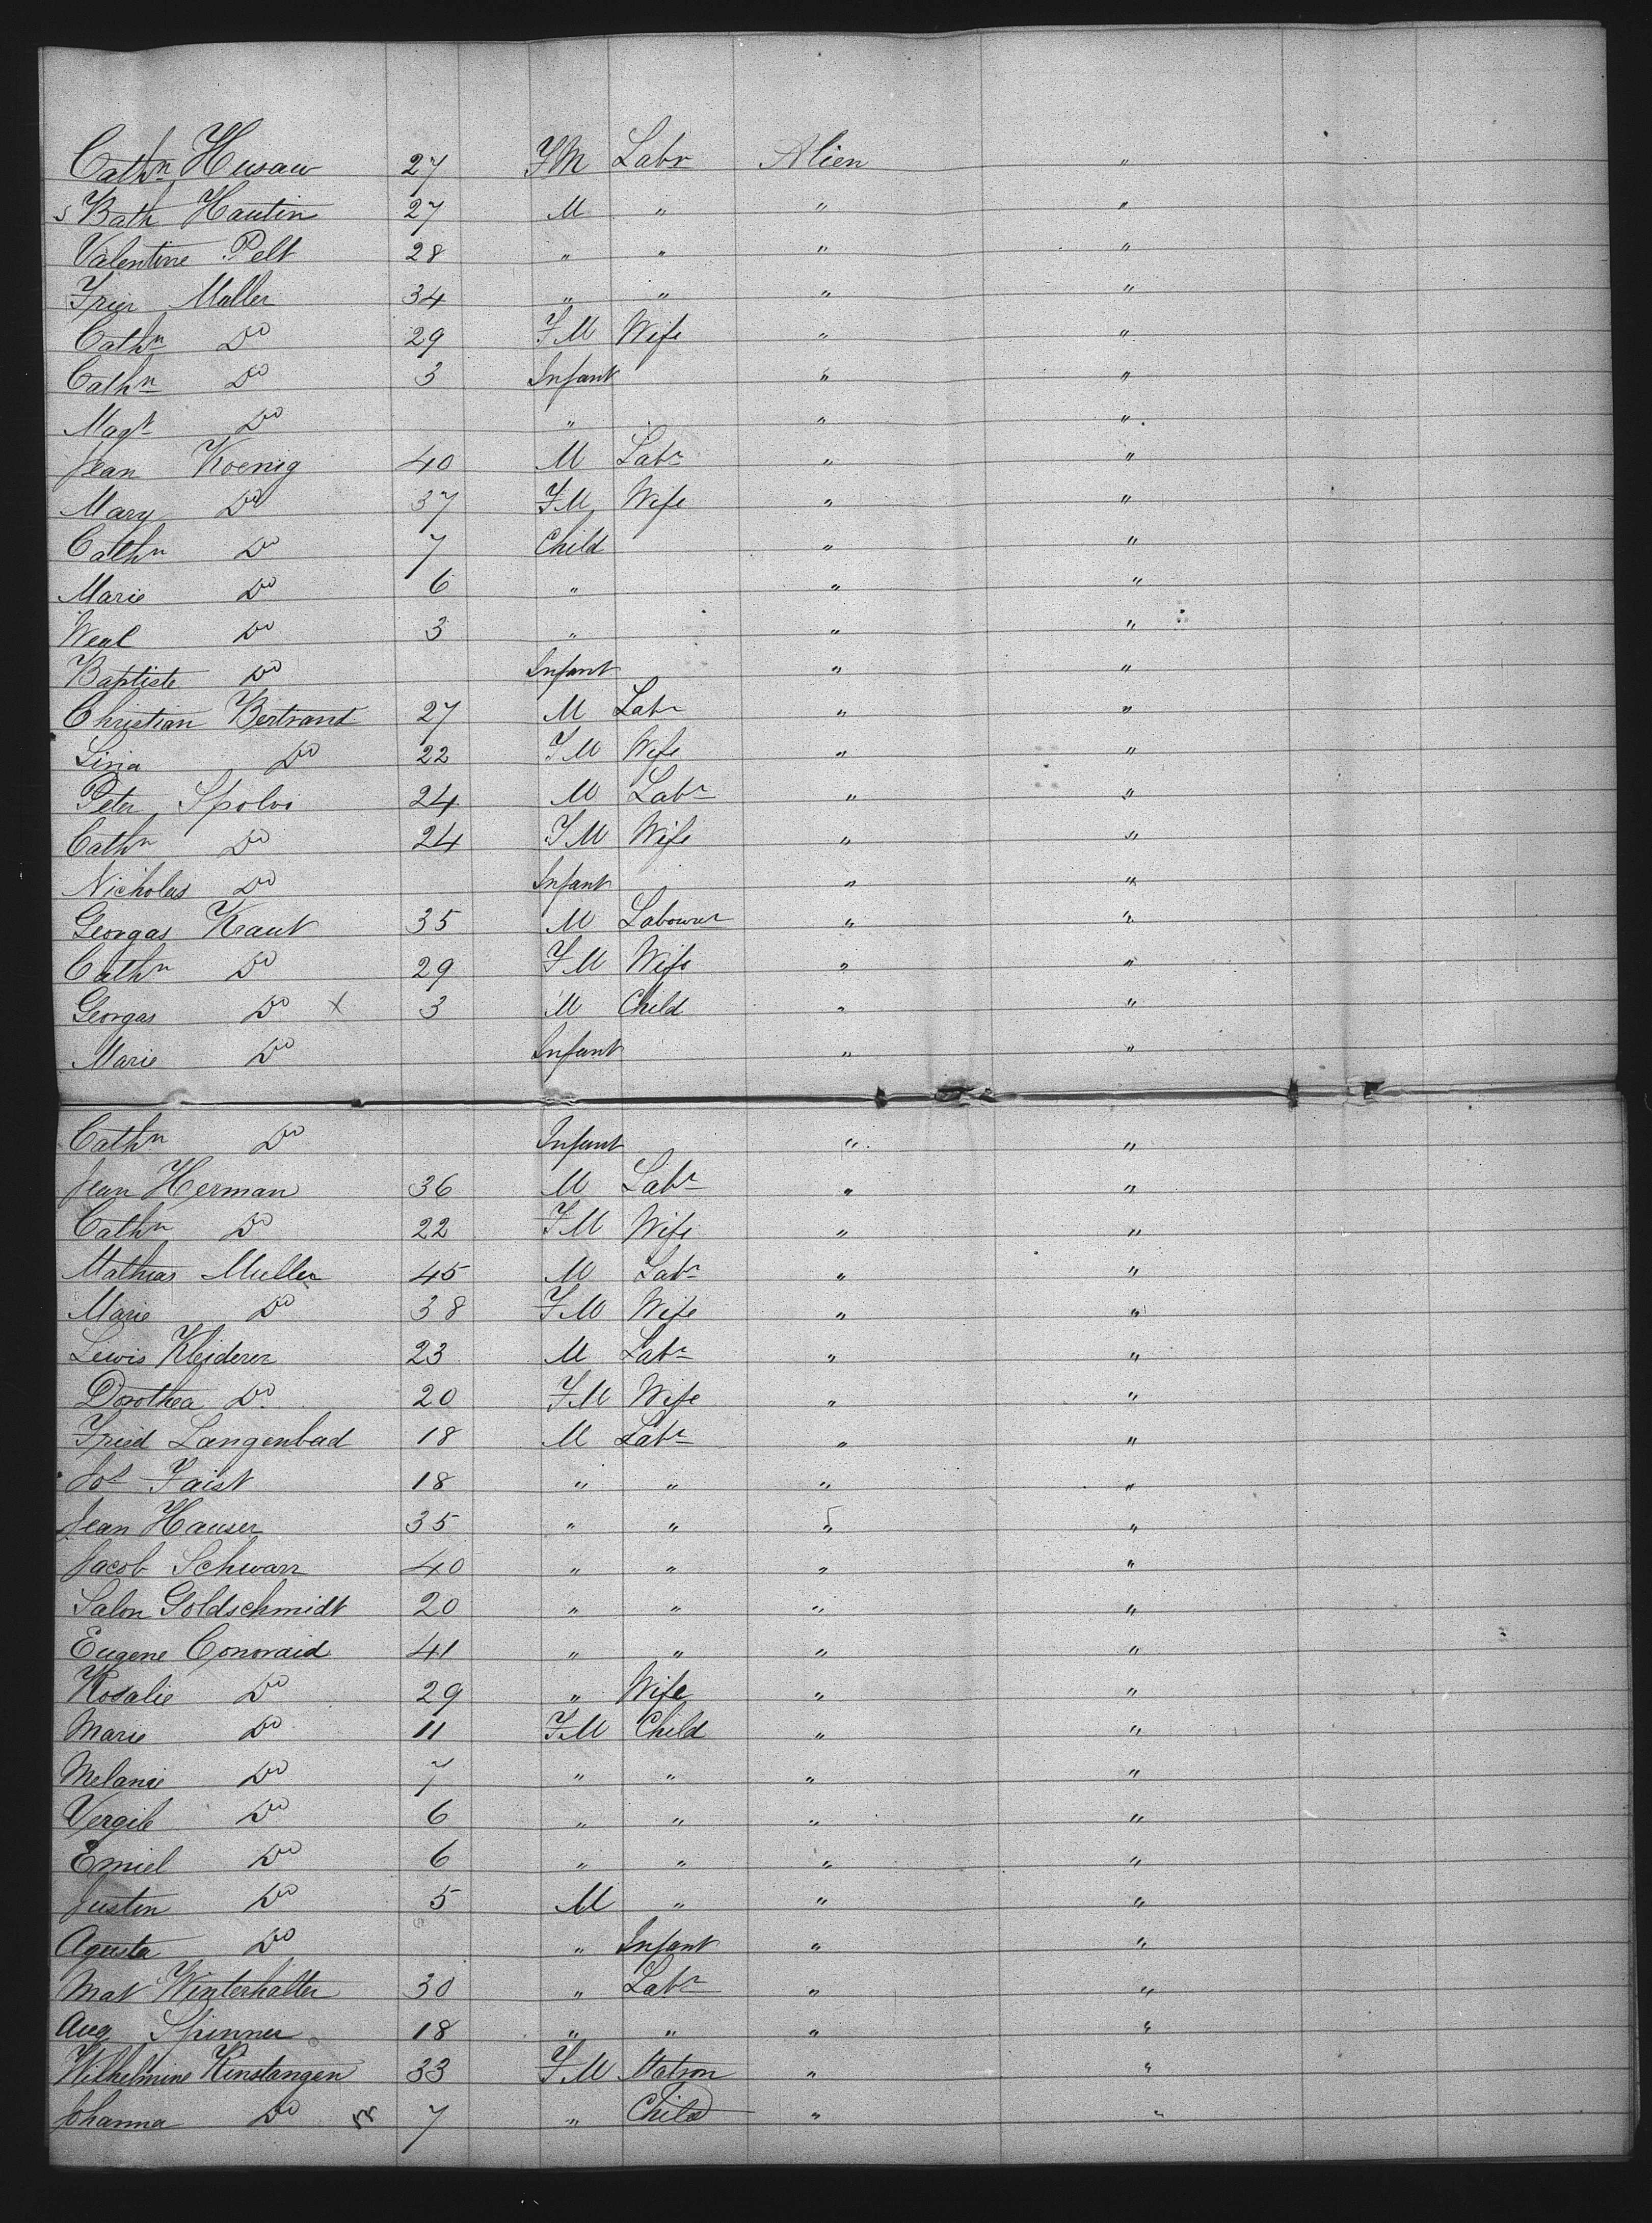 Cathn Husaw 27 FM Labr Alien "
s Bath Hautin 27 M " " "
Valentine Pelt 28 " " " "
Frier Maller 34 " " " "
Cathn Do 29 FM Wife " "
Cathn Do 3 Infant " "
Magt Do " " "
Jean Koenig 40 M Labr " "
Mary Do 37 FM Wife " "
Cathn Do 7 Child " "
Marie Do 6 " " "
Do 3 " " "
Baptiste Do Infant " "
Christian Bertrand 27 M Labr " "
Lina Do 22 FM Wife " "
Peter Spolvi 24 M Labr " "
Cathn Do 24 FM Wife " "
Nicholas Do Infant " "
Georgas Kraut 35 M Labourer " "
Cathn Do 29 FM Wife " "
Georgas Do x 3 M Child " "
Marie Do Infant " "
Cathn Do Infant " "
Jean Herman 36 M Labr " "
Cathn Do 22 FM Wife " "
Mathias Muller 45 M Labr " "
Marie Do 38 FM Wife " "
Lewis Kleiderer 23 M Labr " "
Dorothea Do 20 FM Wife " "
Fried Langenbad 18 M Labr " "
Jos Faist 18 " " " "
Jean Hauser 35 " " " "
Jacob Schwarz 40 " " " "
Salon Goldschmidt 20 " " " "
Eugene Conoraid 41 " " " "
Rosalie Do 29 " Wife " "
Marie Do 11 FM Child " "
Melanie Do 7 " " " "
Vergile Do 6 " " " "
Emiel Do 6 " " " "
Justin Do 5 M " " "
Agusta Do " Infant " "
Mat Winterhalter 30 " Labr " "
Aug Spinner 18 " " " "
Wilhelmine Kinstangen 33 FM Matron " "
Johanna Do 7 " Child " "